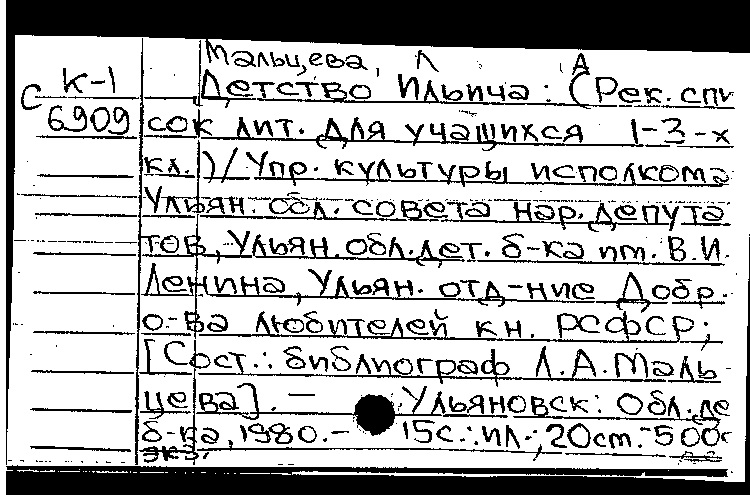 Мальцева, Л А
К-1
Детство Ильича: (Рек. спи
С
6909
сок лит. для учащихся 1-3-х
кл.)/ Упр. культуры исполкома
Ульян. обл. совета нар. депута
тов, Ульян. обл. дет. б-ка им. В.И.
Ленина, Ульян. отд-ние Добр.
о-ва любителей кн. РСФСР;
[Сост.: библиограф Л.А. Маль-
цева]. — Ульяновск: Обл. де
б-ка, 1980. - 15с.: ил.; 20см. - 500
экз.